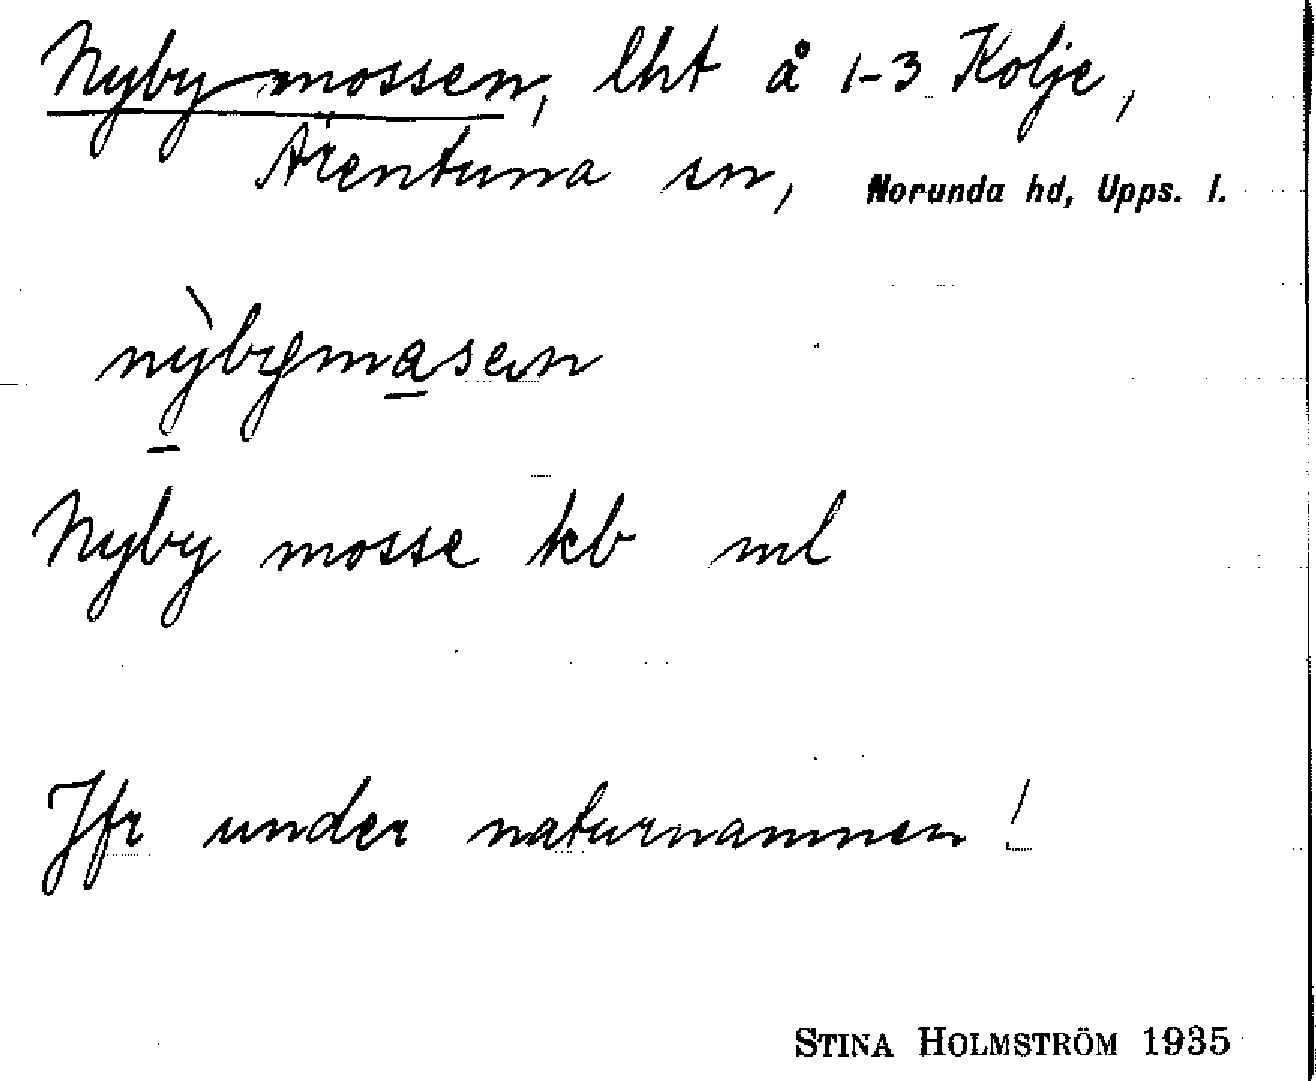 Nybymossen, lht å 1-3 Kolje,
Ärentuna sn, Norunda hd, Upps. l.
nỳbymasen
Nyby mosse kb ml
Jfr under naturnamnen!
STINA HOLMSTRÖM 1935